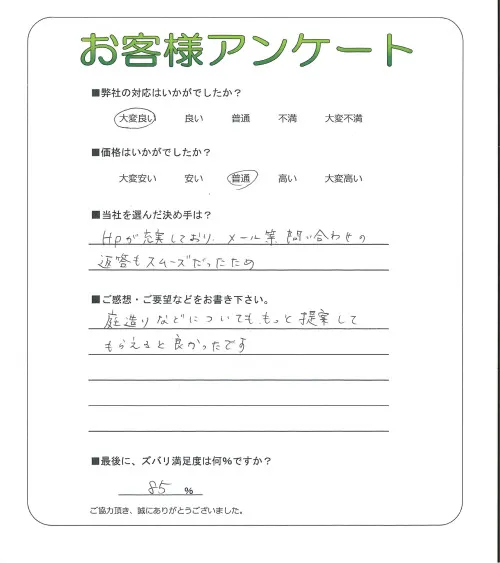 お客様アンケート
■弊社の対応はいかがでしたか?
大変良い 良い 普通 不満 大変不満
■価格はいかがでしたか?
大変安い 安い 普通 高い 大変高い
■当社を選んだ決め手は?
HPが充実しており、メール等問い合わせの
返答もスムーズだったため
■ご感想・ご要望などをお書き下さい。
庭造りなどについても、もっと提案して
もらえると良かったです
■最後に、ズバリ満足度は何%ですか?
85 %
ご協力頂き、誠にありがとうございました。